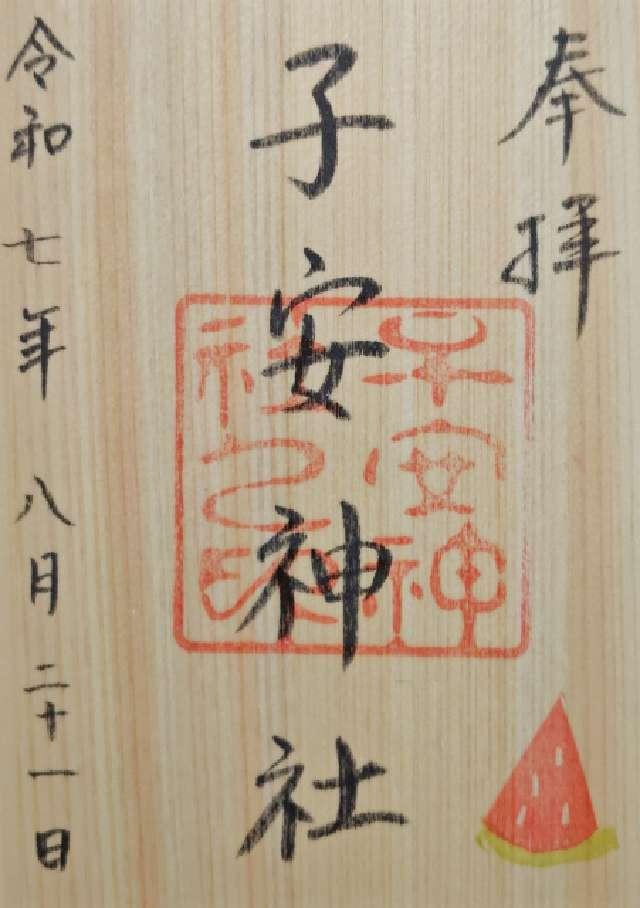 奉拝
子安神社
子安神
社之印
令和七年八月二十一日